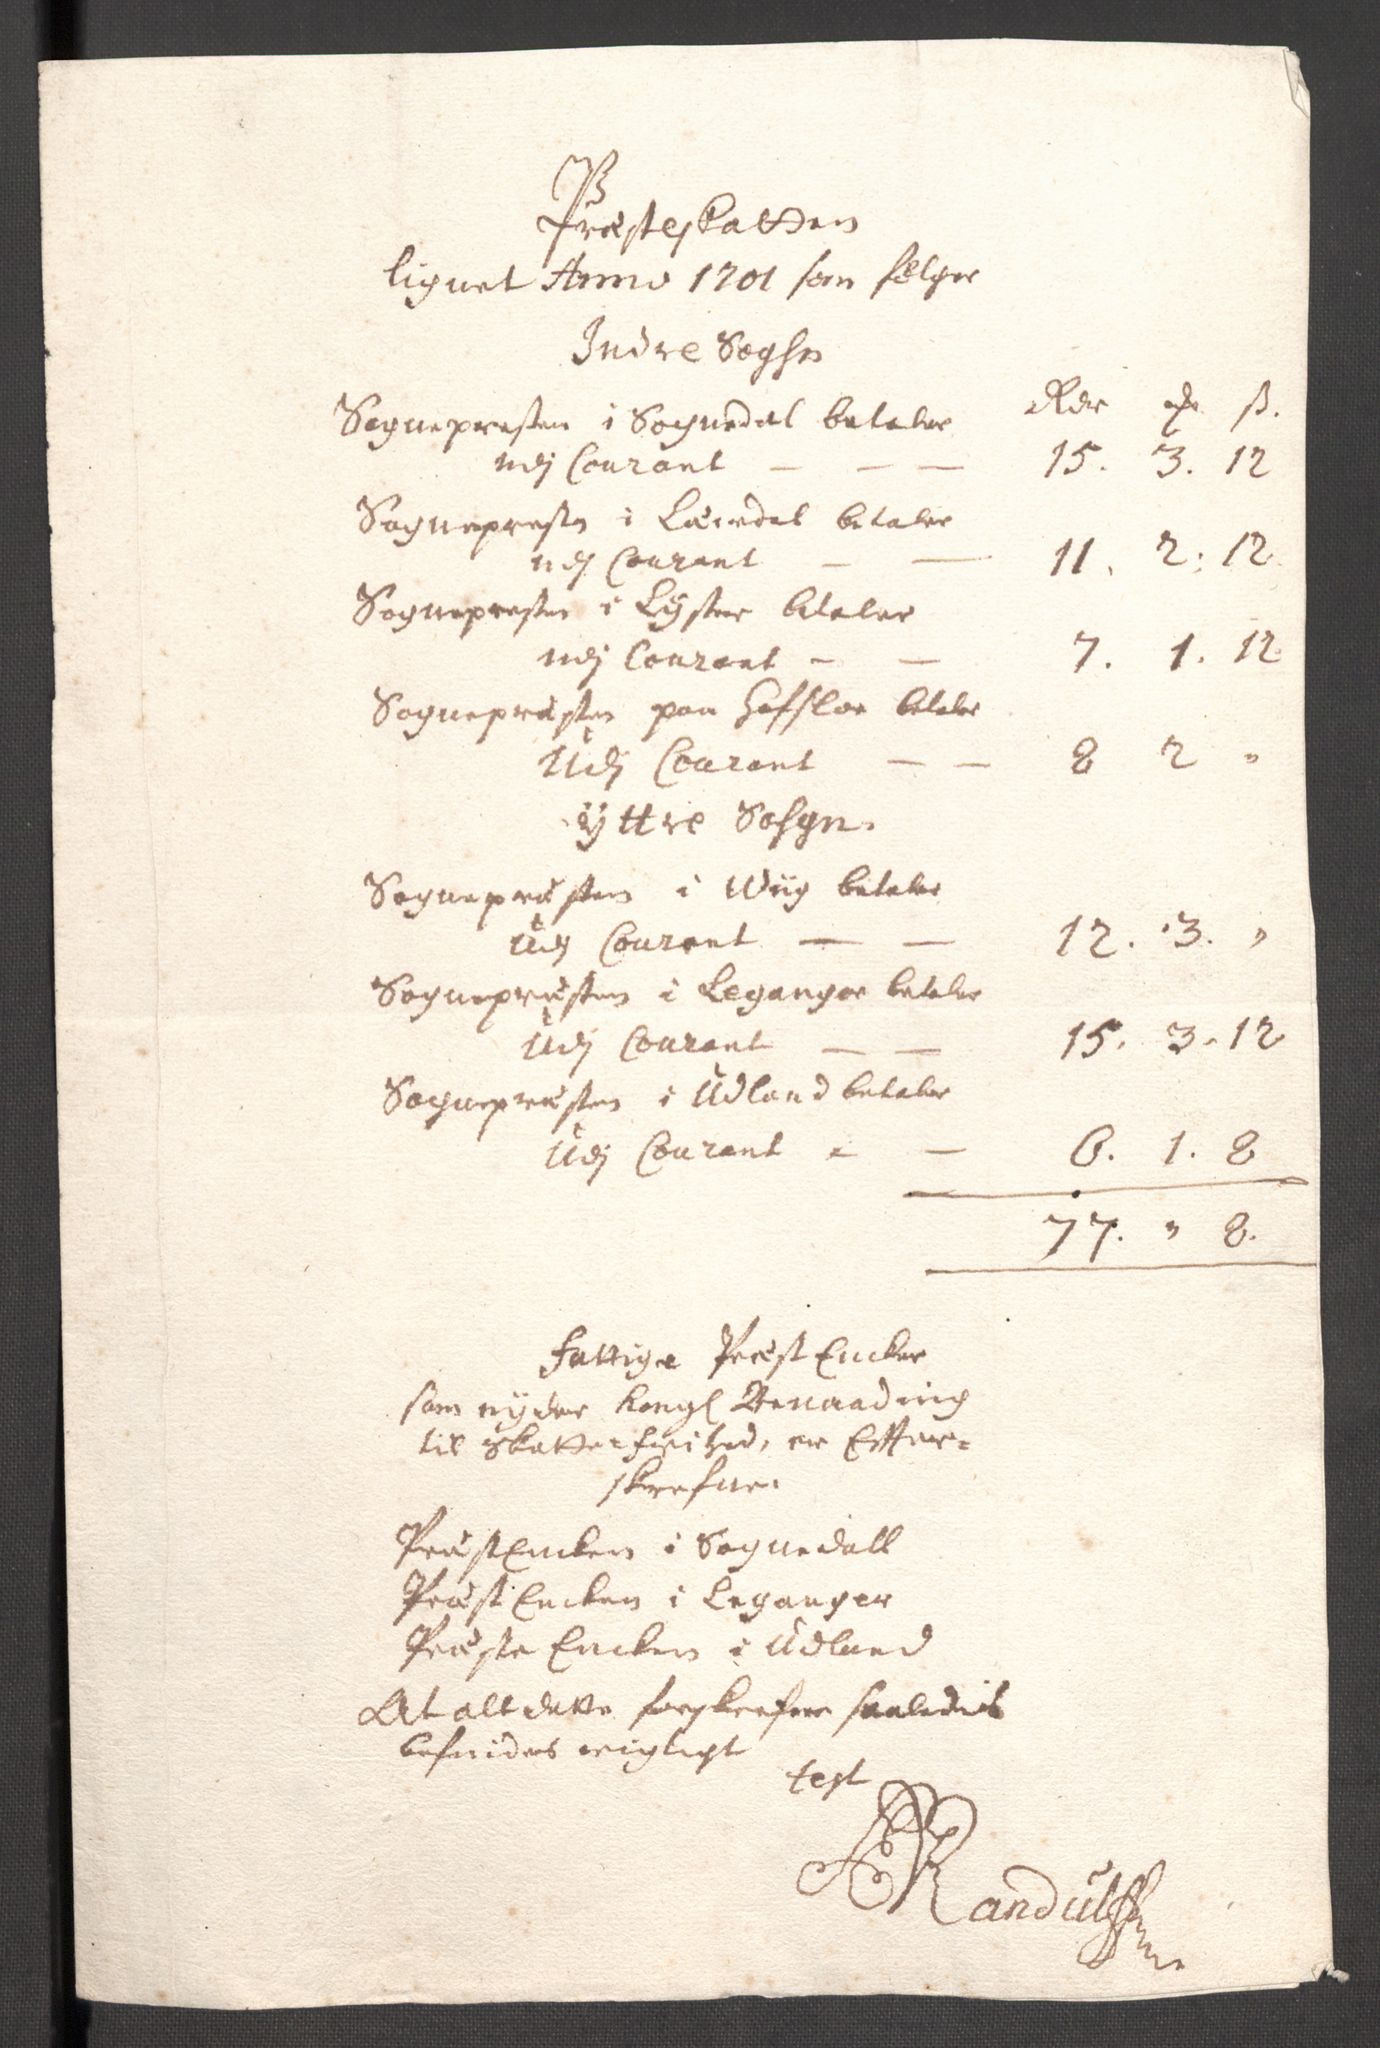 Præsteskatten
lignet Anno 1701 som følger
Indre Sogn
Rdr ß.
Sognepresten i Sognedal betaler
udj Courant — — — 15. 3. 12
Sognepresten i Lærdal betaler
udj Courant — — 11. 2. 12
Sognepresten i Lyster betaler
udj Courant — — 7. 1. 12
Sognepræsten paa Hafsloe betaler
Udj Courant — — 8 2 "
Yttre Sogn.
Sognepræsten i Wiig betaler
Udj Courant — — 12. 3. "
Sognepræsten i Leganger betaler
Udj Courant — — 15. 3. 12
Sognepræsten i Udland betaler
Udj Courant — — 6. 1. 8
77. " 8.
Fattige Præst Encker
som nyder Kongl Benaading
til Skatte-frihed, er Effter-
skrefne.
Præst Encken i Sognedall
Præst Encken i Leganger
Præste Encken i Udland
At alt dette forskrefne saaledis
befindes rigtigt
test
Randulff